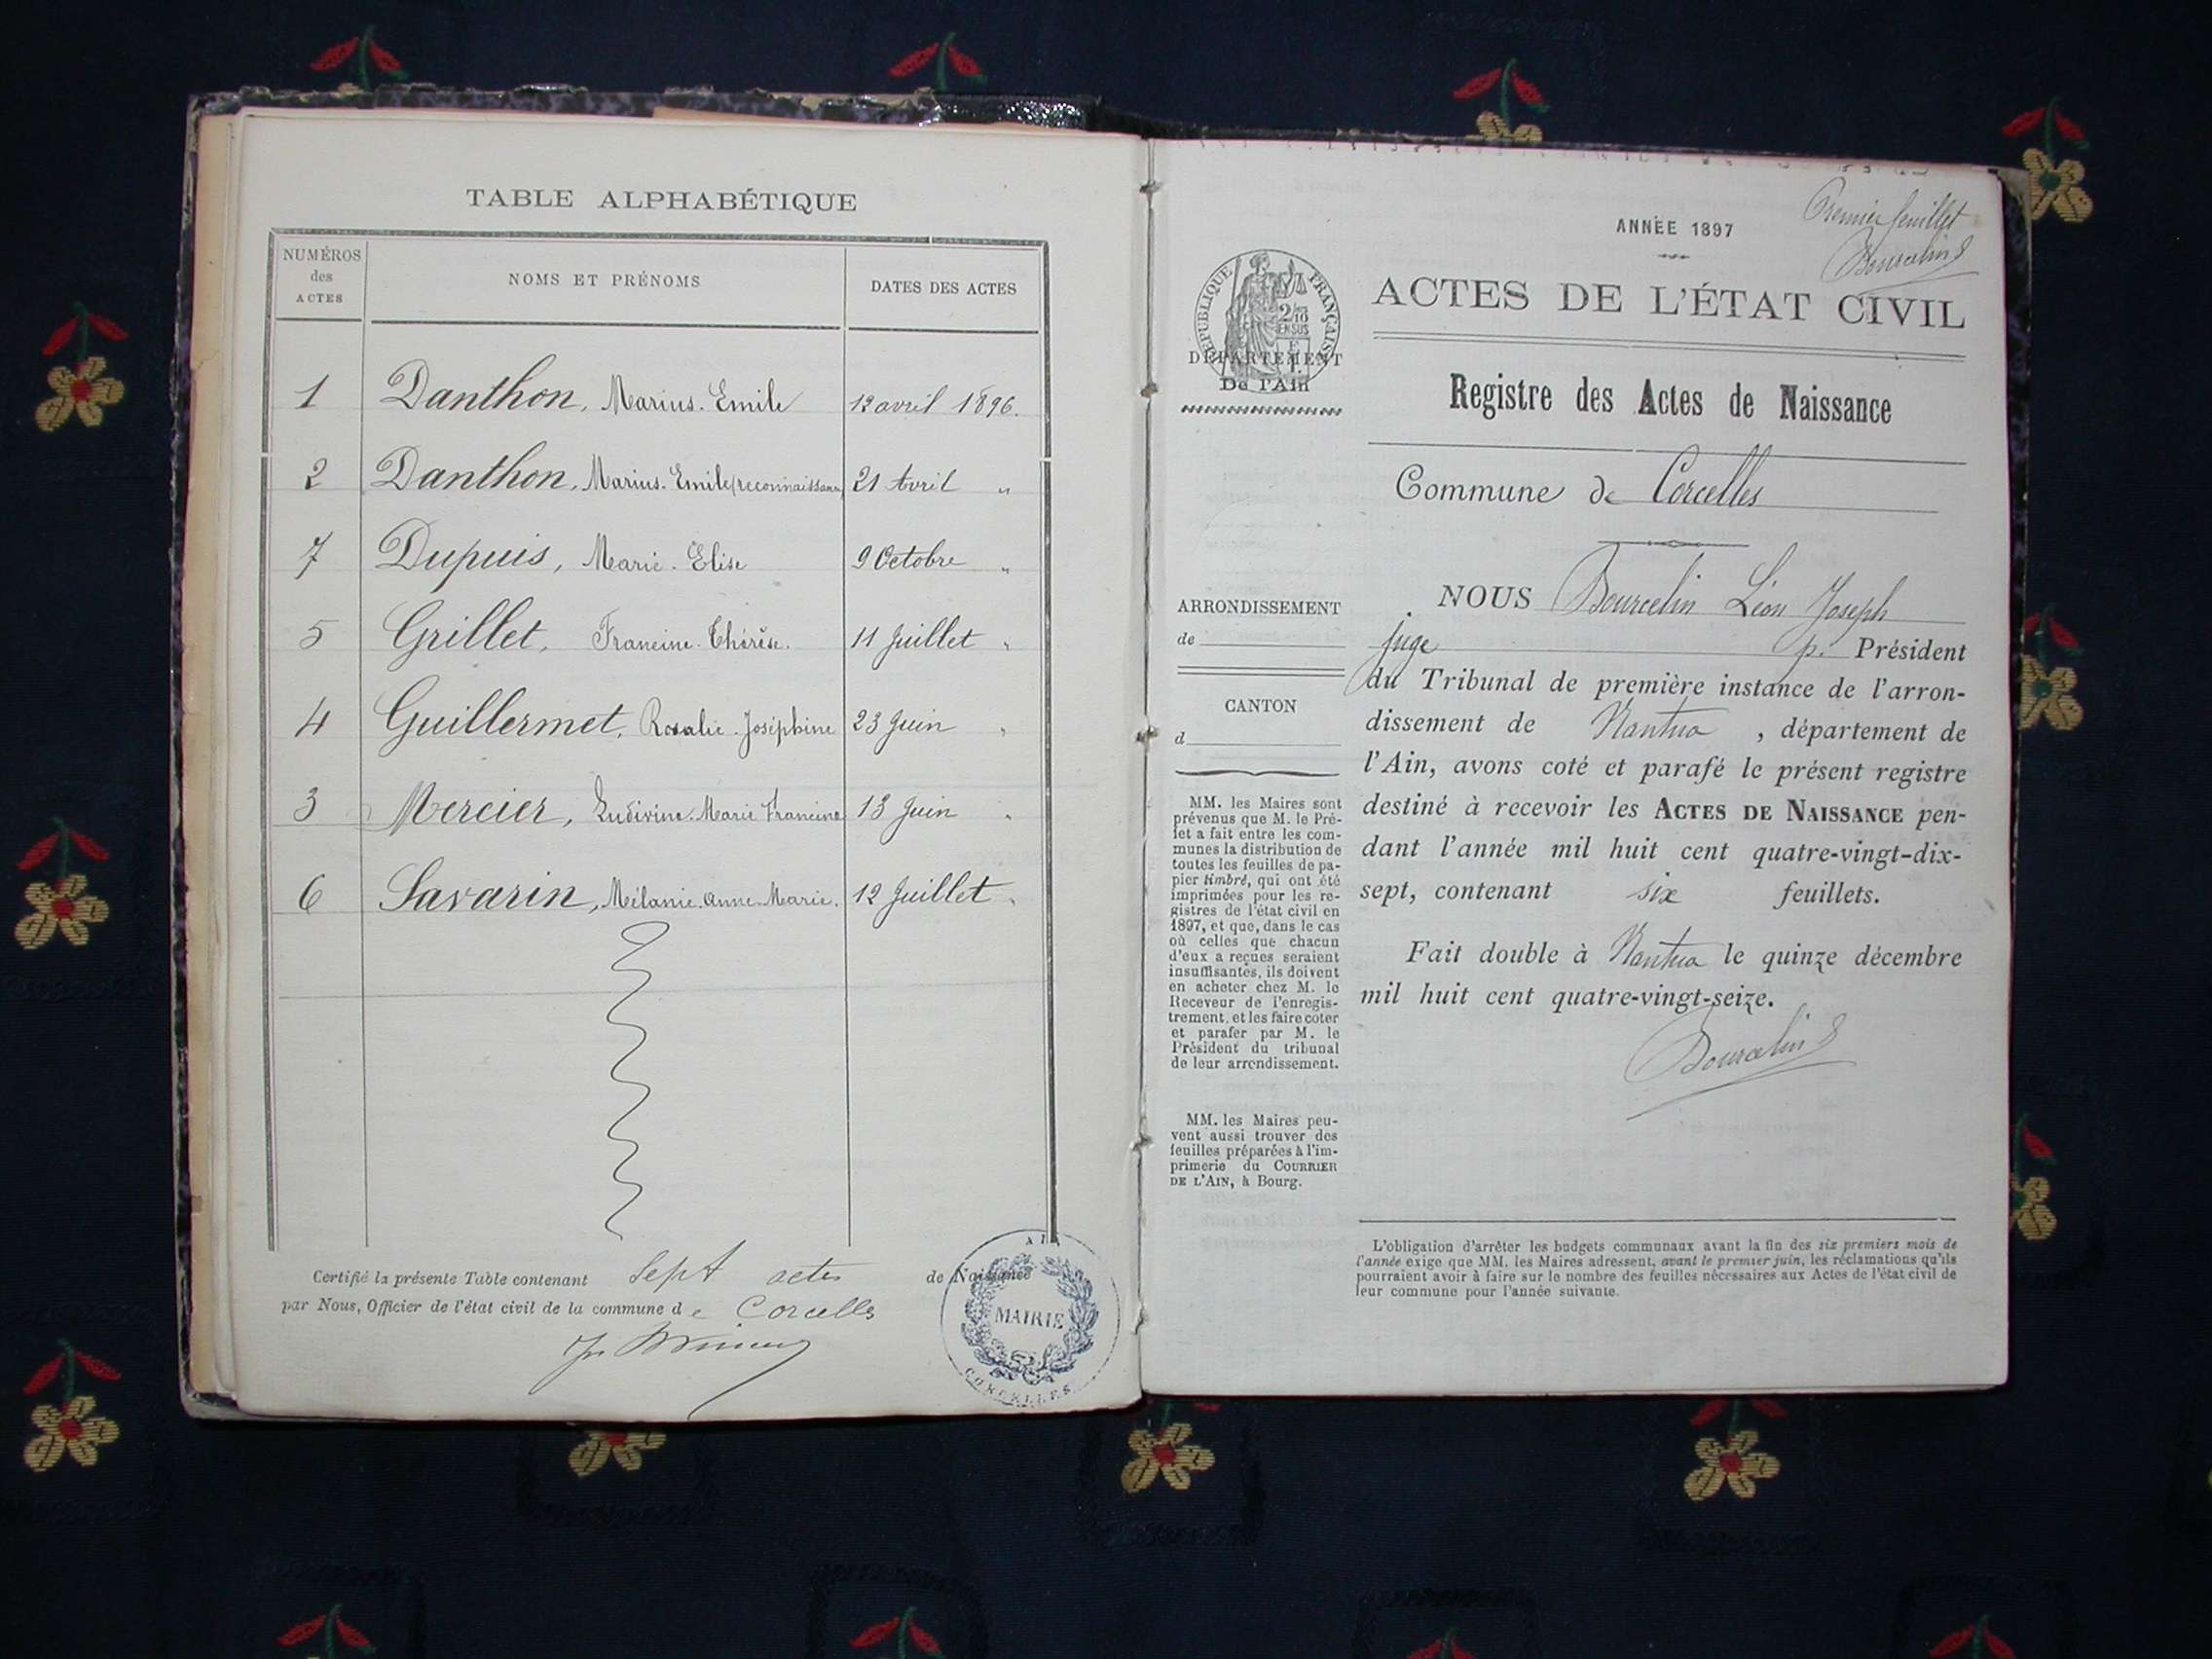 TABLE ALPHABÉTIQUE
NUMÉROS des ACTES
NOMS ET PRÉNOMS
DATES DES ACTES
1 Danthon, Marius. Emile 12 avril 1896.
2 Danthon, Marius. Emile (reconnaissance) 21 Avril "
7 Dupuis, Marie. Elise 9 Octobre "
5 Grillet, Francine. Thérèse. 11 Juillet "
4 Guillermet, Rosalie. Joséphine 23 Juin "
3 Mercier, Ludivine. Marie Francine 13 Juin "
6 Savarin, Mélanie. Anne. Marie. 12 Juillet "
Certifié la présente Table contenant Sept actes de Naissance
par Nous, Officier de l'état civil de la commune de Corcelles
MAIRIE
CORCELLES
AIN
Premier feuillet
Bourcelin
ANNÉE 1897
RÉPUBLIQUE FRANÇAISE
2/10
EN SUS
DÉPARTEMENT
De l'Ain
ACTES DE L'ÉTAT CIVIL
Registre des Actes de Naissance
Commune de Corcelles
ARRONDISSEMENT
de
CANTON
d
MM. les Maires sont
prévenus que M. le Pré-
fet a fait entre les com-
munes la distribution de
toutes les feuilles de pa-
pier timbré, qui ont été
imprimées pour les re-
gistres de l'état civil en
1897, et que, dans le cas
où celles que chacun
d'eux a reçues seraient
insuffisantes, ils doivent
en acheter chez M. le
Receveur de l'enregis-
trement, et les faire coter
et parafer par M. le
Président du tribunal
de leur arrondissement.
MM. les Maires peu-
vent aussi trouver des
feuilles préparées à l'im-
primerie du COURRIER
DE L'AIN, à Bourg.
NOUS Bourcelin Léon Joseph
juge p. Président
du Tribunal de première instance de l'arron-
dissement de Nantua, département de
l'Ain, avons coté et parafé le présent registre
destiné à recevoir les ACTES DE NAISSANCE pen-
dant l'année mil huit cent quatre-vingt-dix-
sept, contenant six feuillets.
Fait double à Nantua le quinze décembre
mil huit cent quatre-vingt-seize.
Bourcelin
L'obligation d'arrêter les budgets communaux avant la fin des six premiers mois de
l'année exige que MM. les Maires adressent, avant le premier juin, les réclamations qu'ils
pourraient avoir à faire sur le nombre des feuilles nécessaires aux Actes de l'état civil de
leur commune pour l'année suivante.